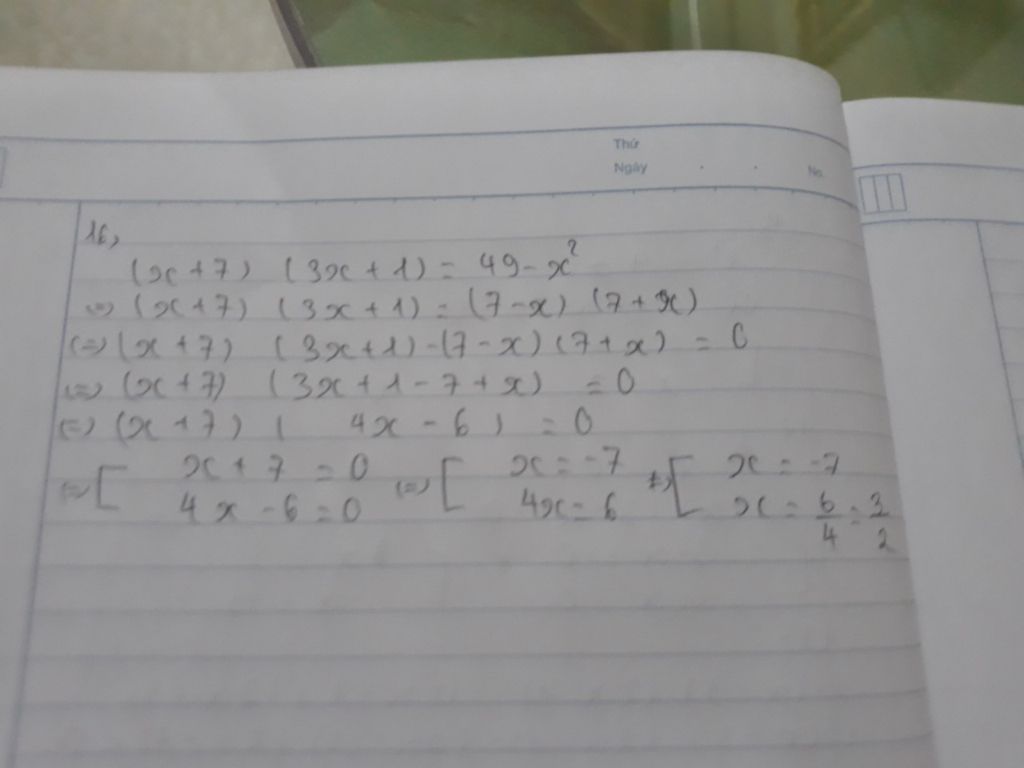 Thứ
Ngày . . No.
16,
(x+7) (3x+1) = 49-x²
<=> (x+7) (3x+1) = (7-x) (7+x)
<=> (x+7) (3x+1)-(7-x)(7+x) = 0
<=> (x+7) (3x+1-7+x) =0
<=> (x+7) ( 4x-6) =0
<=> [ x+7=0 <=> [ x=-7 <=> [ x=-7
4x-6=0 4x=6 x=6/4=3/2